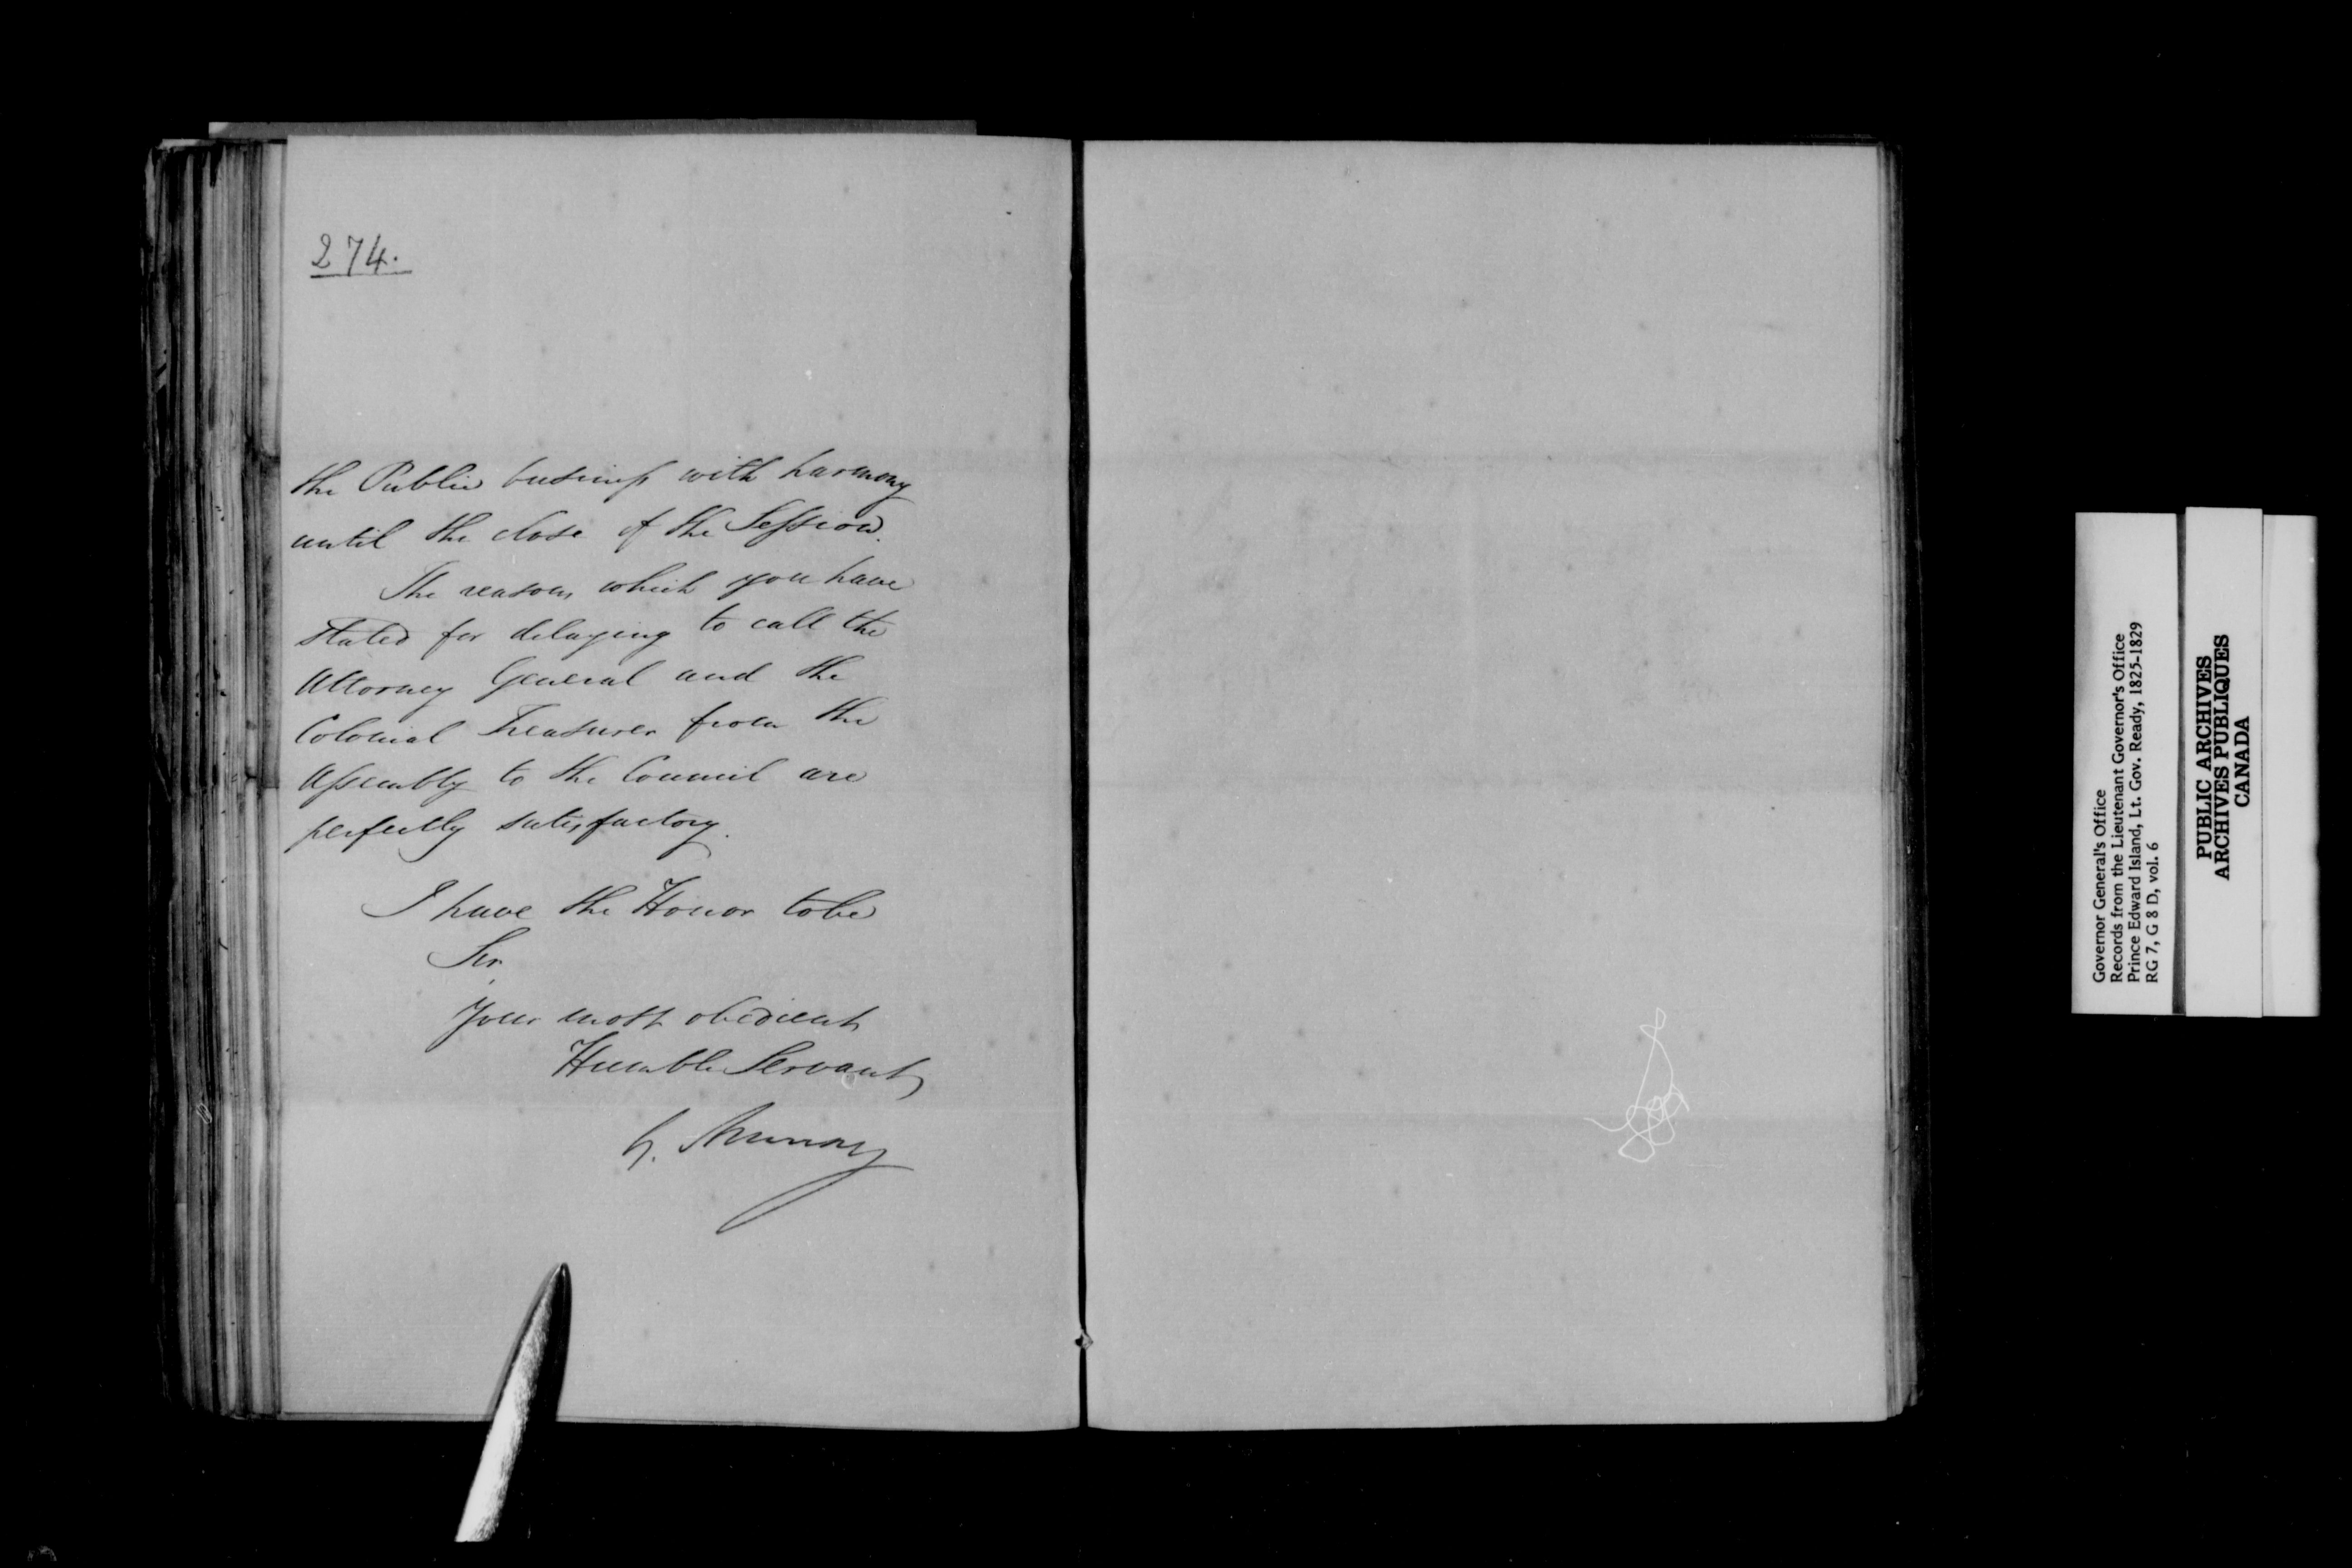 274.
the Public business with harmony
until the close of the Session.
The reasons which you have
stated for delaying to call the
Attorney General and the
Colonial Treasurer from the
Assembly to the Council are
perfectly satisfactory.
I have the Honor to be
Sir,
Your most obedient
Humble Servant
G. Murray
Governor General's Office
Records from the Lieutenant Governor's Office
Prince Edward Island, Lt. Gov. Ready, 1825-1829
RG 7, G 8 D, vol. 6
PUBLIC ARCHIVES
ARCHIVES PUBLIQUES
CANADA